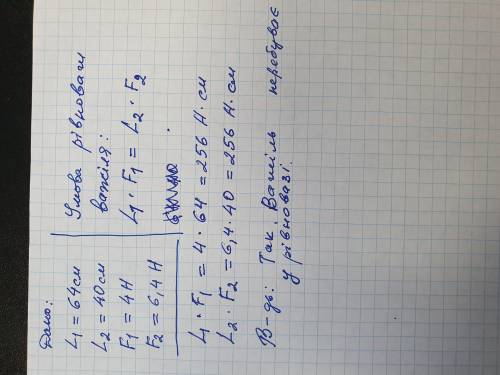 Дано:
L₁ = 64см
L₂ = 40см
F₁ = 4Н
F₂ = 6,4Н
Умова рівноваги
важіля:
L₁ · F₁ = L₂ · F₂
L₁ · F₁ = 4 · 64 = 256 Н · см
L₂ · F₂ = 6,4 · 40 = 256 Н · см
В-дь: Так. Важіль перебуває
у рівновазі.